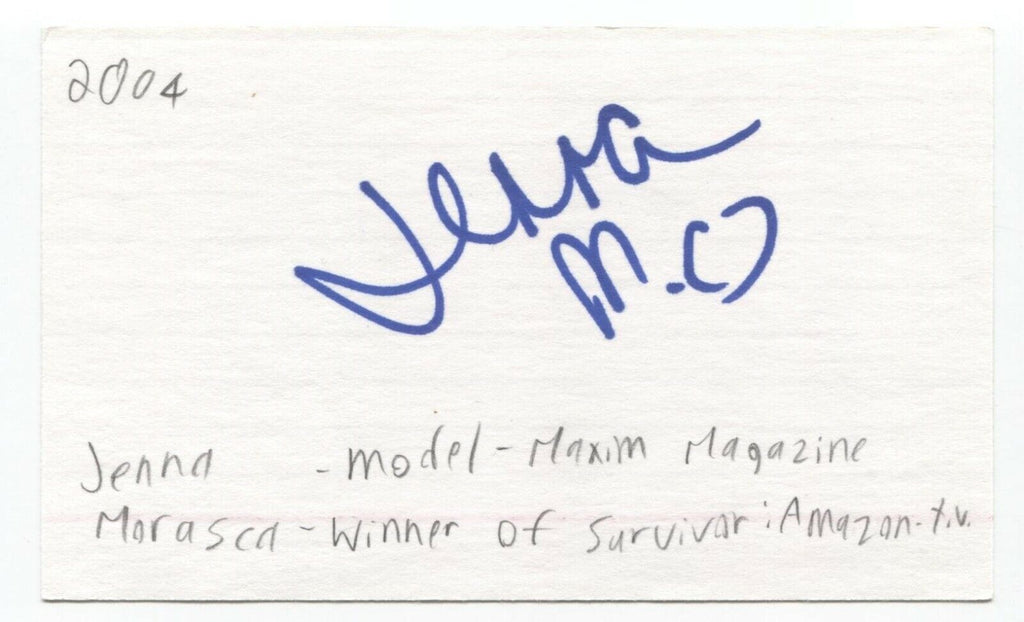 2004
Jenna
M.
Jenna - Model - Maxim Magazine
Morasca - Winner of Survivor: Amazon - t.v.